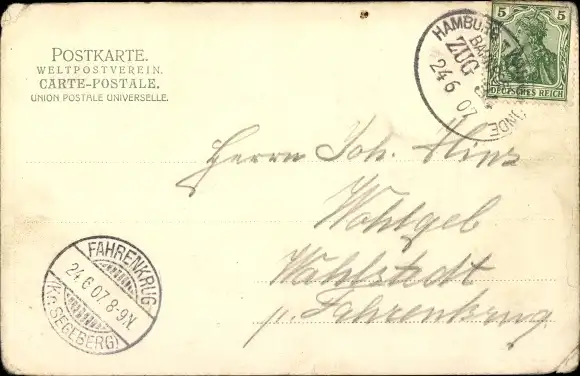 POSTKARTE.
WELTPOSTVEREIN.
CARTE-POSTALE.
UNION POSTALE UNIVERSELLE.
HAMBURG
ZUG
24 6 07
5 5
DEUTSCHES REICH
Herrn Joh.
Wohlgeb
Wahlstedt
p. Fahrenkrug
FAHRENKRUG
24.6.07. 8-9N.
(KR. SEGEBERG)